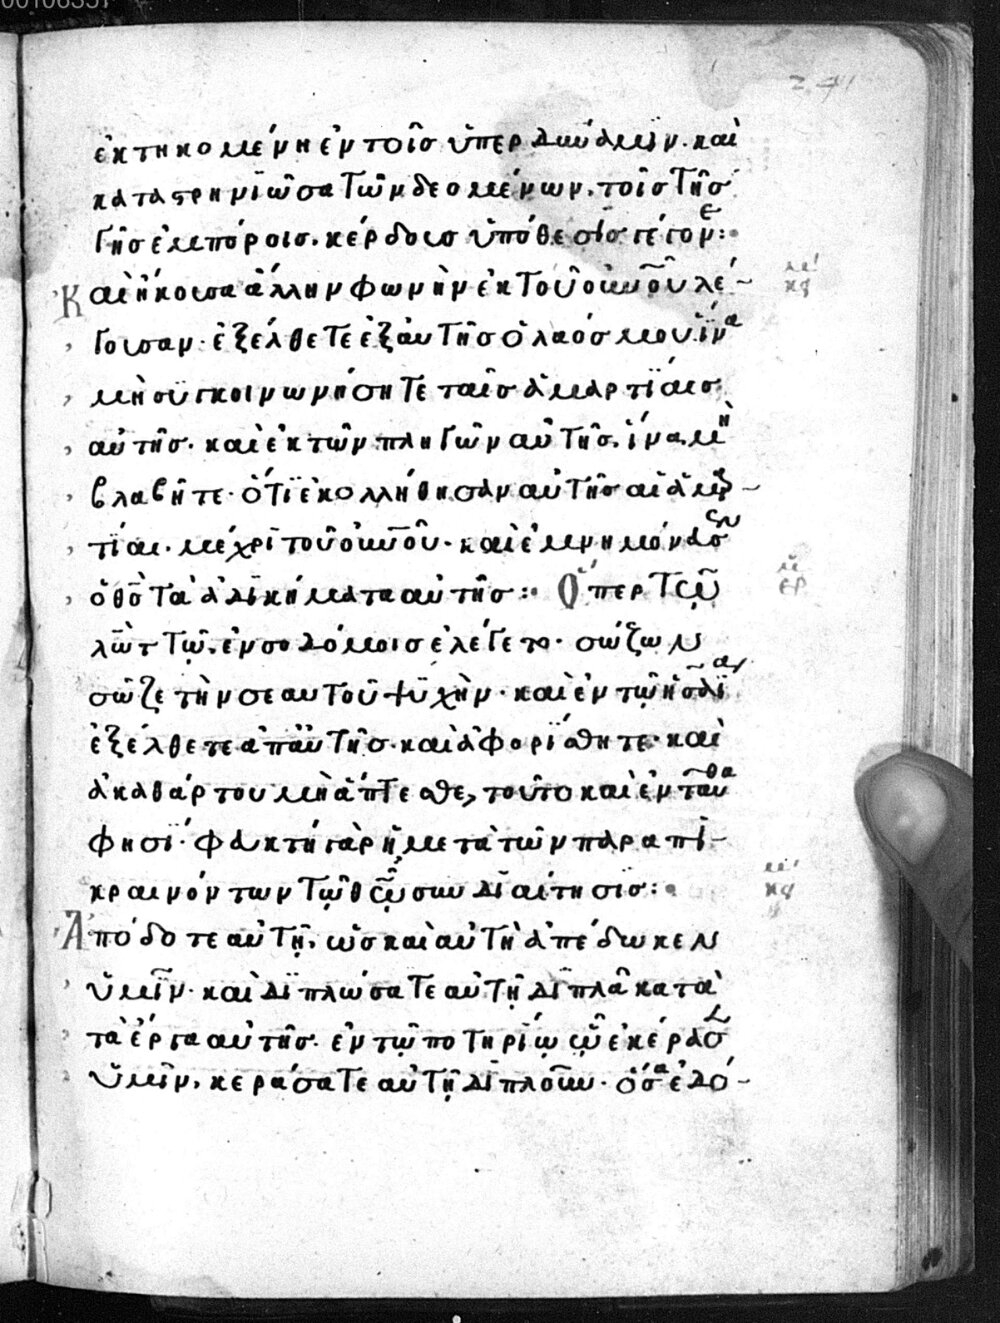 241
ἐκτηκομένη ἐν τοῖσ ὑπερ δύναμιν. και
καταστρηνιῶσα τῶν δεομένων. τοῖσ τῆσ
γῆσ ἐμπόροισ. κέρδουσ ὑπόθεσισ γέγονε:
Και ἤκουσα ἄλλην φωνὴν ἐκ τοῦ οὐνοῦ λέ-
γουσαν. ἐξέλθετε ἐξ αυτῆσ ὁ λαόσ μου. ἵνα
μὴ συγκοινωνήσητε ταῖσ ἁμαρτίαισ
αὐτῆσ. και ἐκ τῶν πληγῶν αὐτῆσ. ἵνα μὴ
βλαβῆτε. ὅτι ἐκολλήθησαν αυτῆσ αἱ ἁμαρ-
τίαι. μέχρι τοῦ οὐνοῦ. και ἐμνημόνευσεν
ὁ θσ τὰ ἀδικήματα αυτῆσ: Ὅπερ τῶ
λὼτ τῶ ἐν σοδόμοισ ἐλέγετο. σώζων
σῶζε τὴν σεαυτοῦ ψυχὴν. και ἐν τῶ ἡσαΐα
ἐξέλθετε ἀπ αυτῆσ. και ἀφορίσθητε. και
ἀκαθάρτου μὴ ἅπτεσθε, τοῦτο και ἐνταῦθα
φησί. φευκτὴ γὰρ ἡ μετὰ τῶν παραπι-
κραινόντων τῶ θῶ συνδιαίτησισ:
Ἀπόδοτε αὐτῆ. ὡσ και αὐτὴ ἀπέδωκεν
ὑμῖν. και διπλώσατε αὐτῆ διπλᾶ κατὰ
τὰ ἔργα αυτῆσ. ἐν τῶ ποτηρίω ὧ ἐκέρασεν
ὑμῖν. κεράσατε αυτῆ διπλοῦν. ὅσα ἐδό-